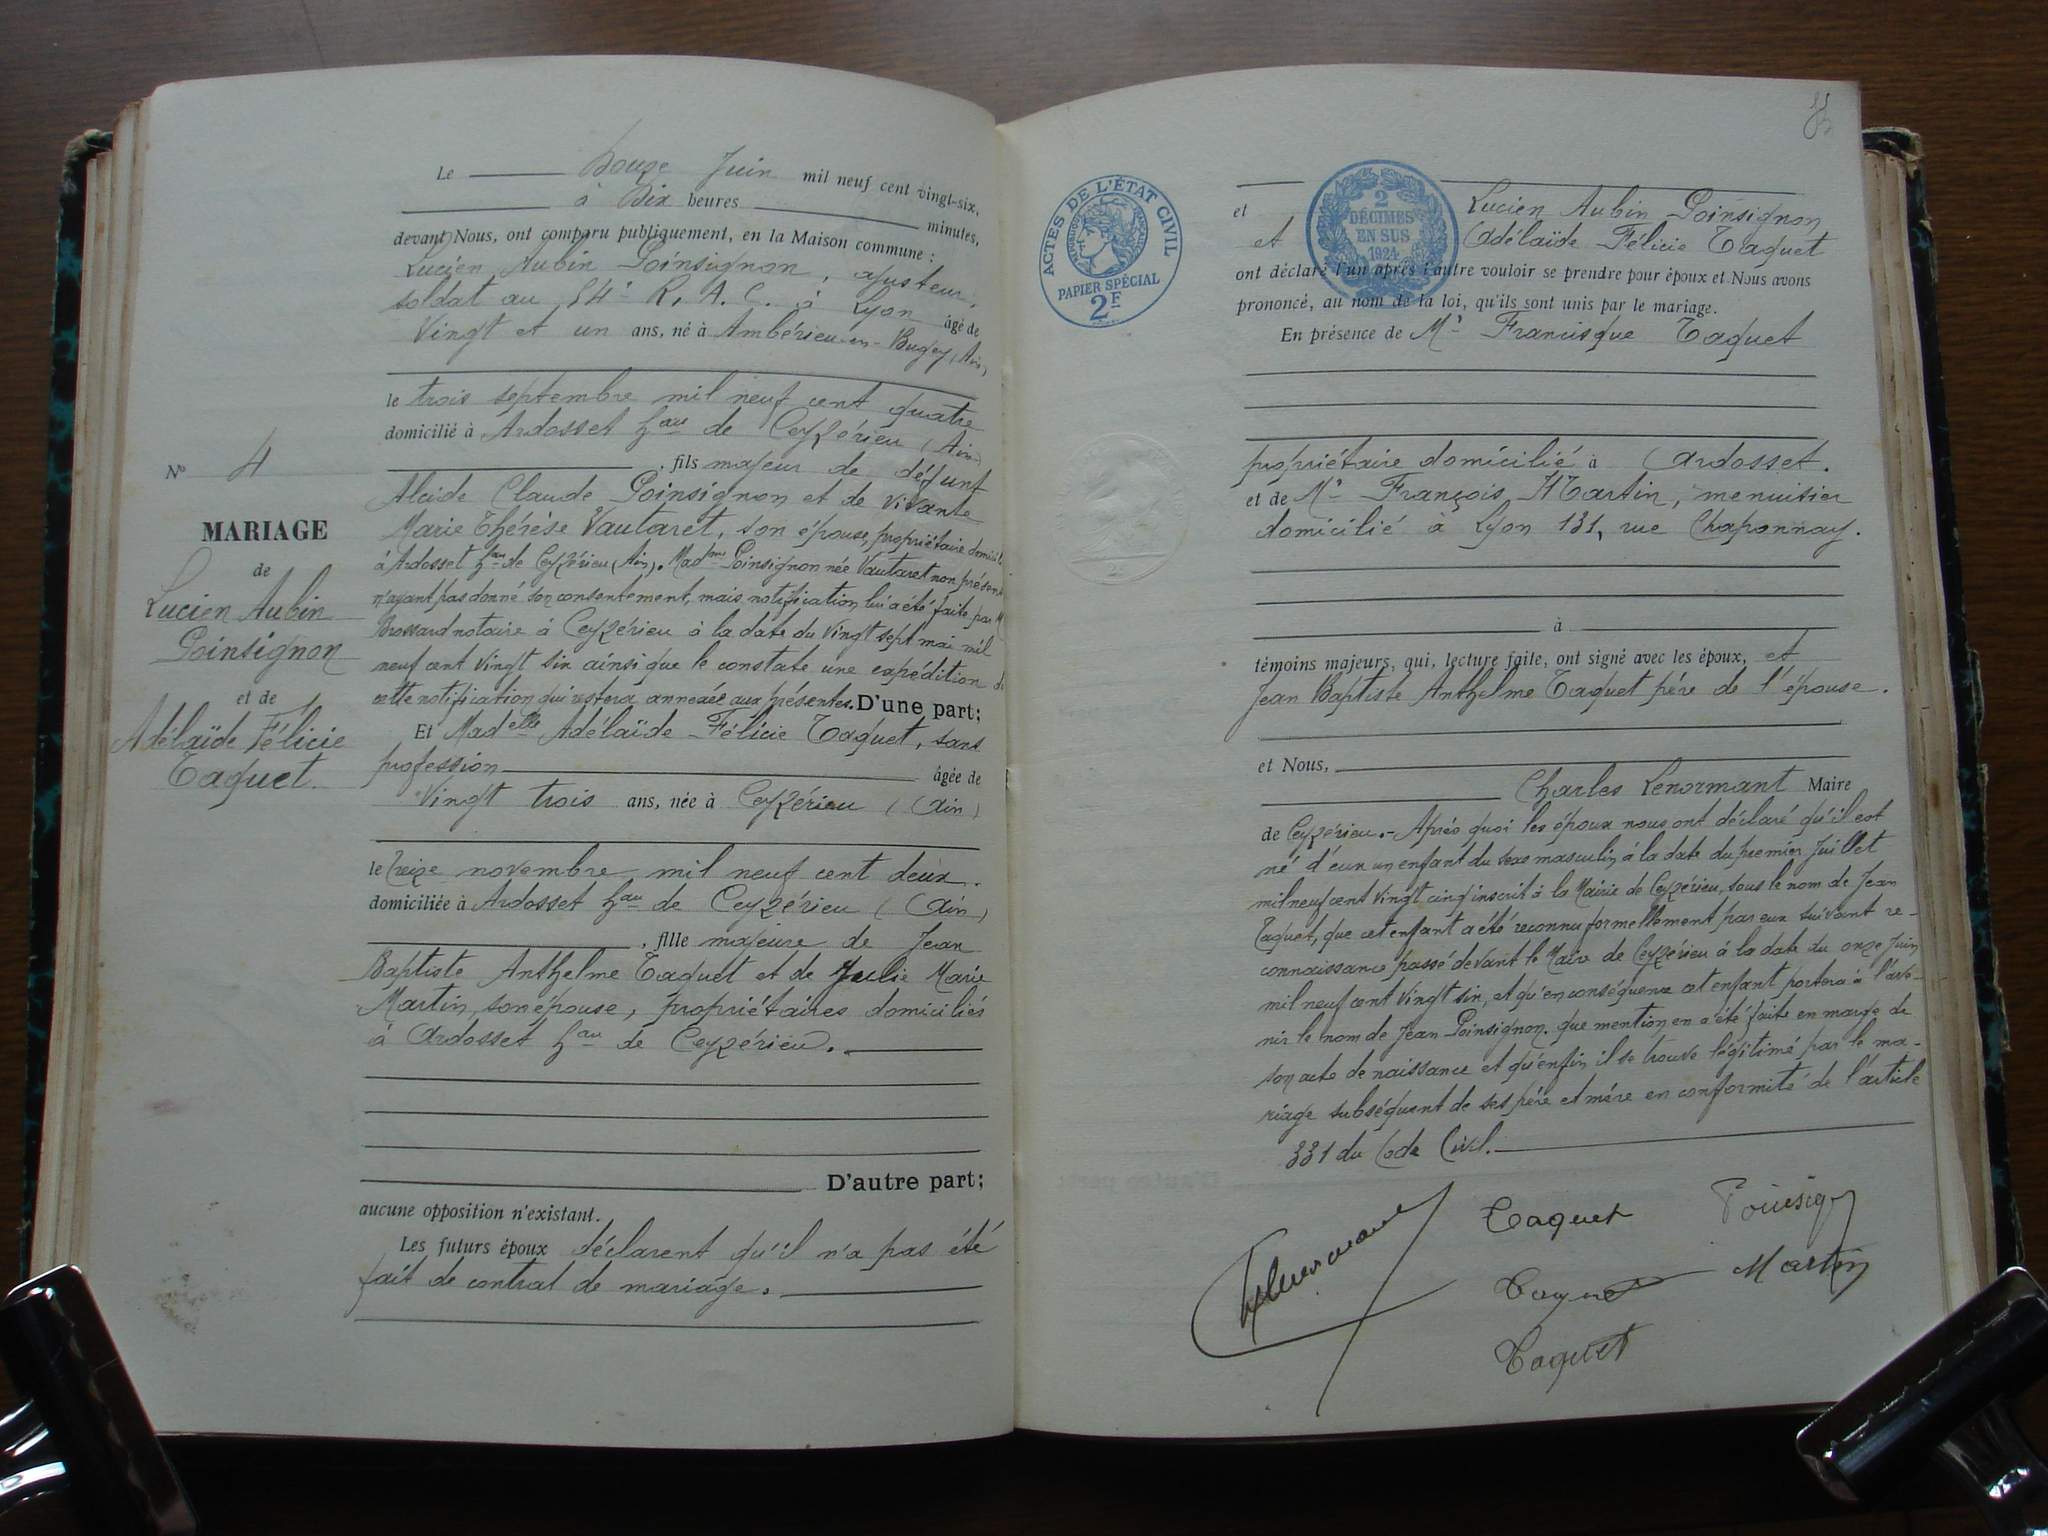 Le Douze Juin mil neuf cent vingt-six,
à Dix heures minutes,
devant Nous, ont comparu publiquement, en la Maison commune :
Lucien Aubin Poinsignon, ajusteur,
soldat au 54e R. A. C. à Lyon âgé de
Vingt et un ans, né à Ambérieu-en-Bugey (Ain)
le trois septembre mil neuf cent quatre
domicilié à Ardosset hau de Ceyzérieu (Ain)
, fils majeur de défunt
Alcide Claude Poinsignon et de vivante
Marie Thérèse Vautaret, son épouse, propriétaire domiciliée
à Ardosset hau de Ceyzérieu (Ain). Madme Poinsignon née Vautaret non présente
n'ayant pas donné son consentement, mais notification lui a été faite par Me
Brossard notaire à Ceyzérieu à la date du vingt sept mai mil
neuf cent vingt six ainsi que le constate une expédition de
cette notification qui restera annexée aux présentes. D'une part;
Et Madelle Adélaïde Félicie Taquet, sans
profession âgée de
Vingt trois ans, née à Ceyzérieu (Ain)
le treize novembre mil neuf cent deux.
domiciliée à Ardosset hau de Ceyzérieu (Ain)
, fille majeure de Jean
Baptiste Anthelme Taquet et de Julie Marie
Martin, son épouse, propriétaires domiciliés
à Ardosset hau de Ceyzérieu.
D'autre part;
aucune opposition n'existant.
Les futurs époux déclarent qu'il n'a pas été
fait de contrat de mariage.
No 4
MARIAGE
de
Lucien Aubin
Poinsignon
et de
Adélaïde Félicie
Taquet.
ACTES DE L'ÉTAT CIVIL
PAPIER SPÉCIAL
2F
2
DÉCIMES
EN SUS
1924
et Lucien Aubin Poinsignon
et Adélaïde Félicie Taquet
ont déclaré l'un après l'autre vouloir se prendre pour époux et Nous avons
prononcé, au nom de la loi, qu'ils sont unis par le mariage.
En présence de Mr Francisque Taquet
propriétaire domicilié à Ardosset.
et de Mr François Martin, menuisier
domicilié à Lyon 131, rue Chaponnay.
à
témoins majeurs, qui, lecture faite, ont signé avec les époux, et
Jean Baptiste Anthelme Taquet père de l'épouse.
et Nous,
Charles Lenormant Maire
de Ceyzérieu.- Après quoi les époux nous ont déclaré qu'il est
né d'eux un enfant du sexe masculin à la date du premier Juillet
mil neuf cent vingt cinq inscrit à la Mairie de Ceyzérieu, sous le nom de Jean
Taquet, que cet enfant a été reconnu formellement par eux suivant re-
connaissance passé devant le Maire de Ceyzérieu à la date du onze Juin
mil neuf cent vingt six, et qu'en conséquence cet enfant portera à l'ave-
nir le nom de Jean Poinsignon. que mention en a été faite en marge de
son acte de naissance et qu'enfin il se trouve légitimé par le ma-
riage subséquent de ses père et mère en conformité de l'article
331 du Code Civil.
Taquet
Martin
Taquet